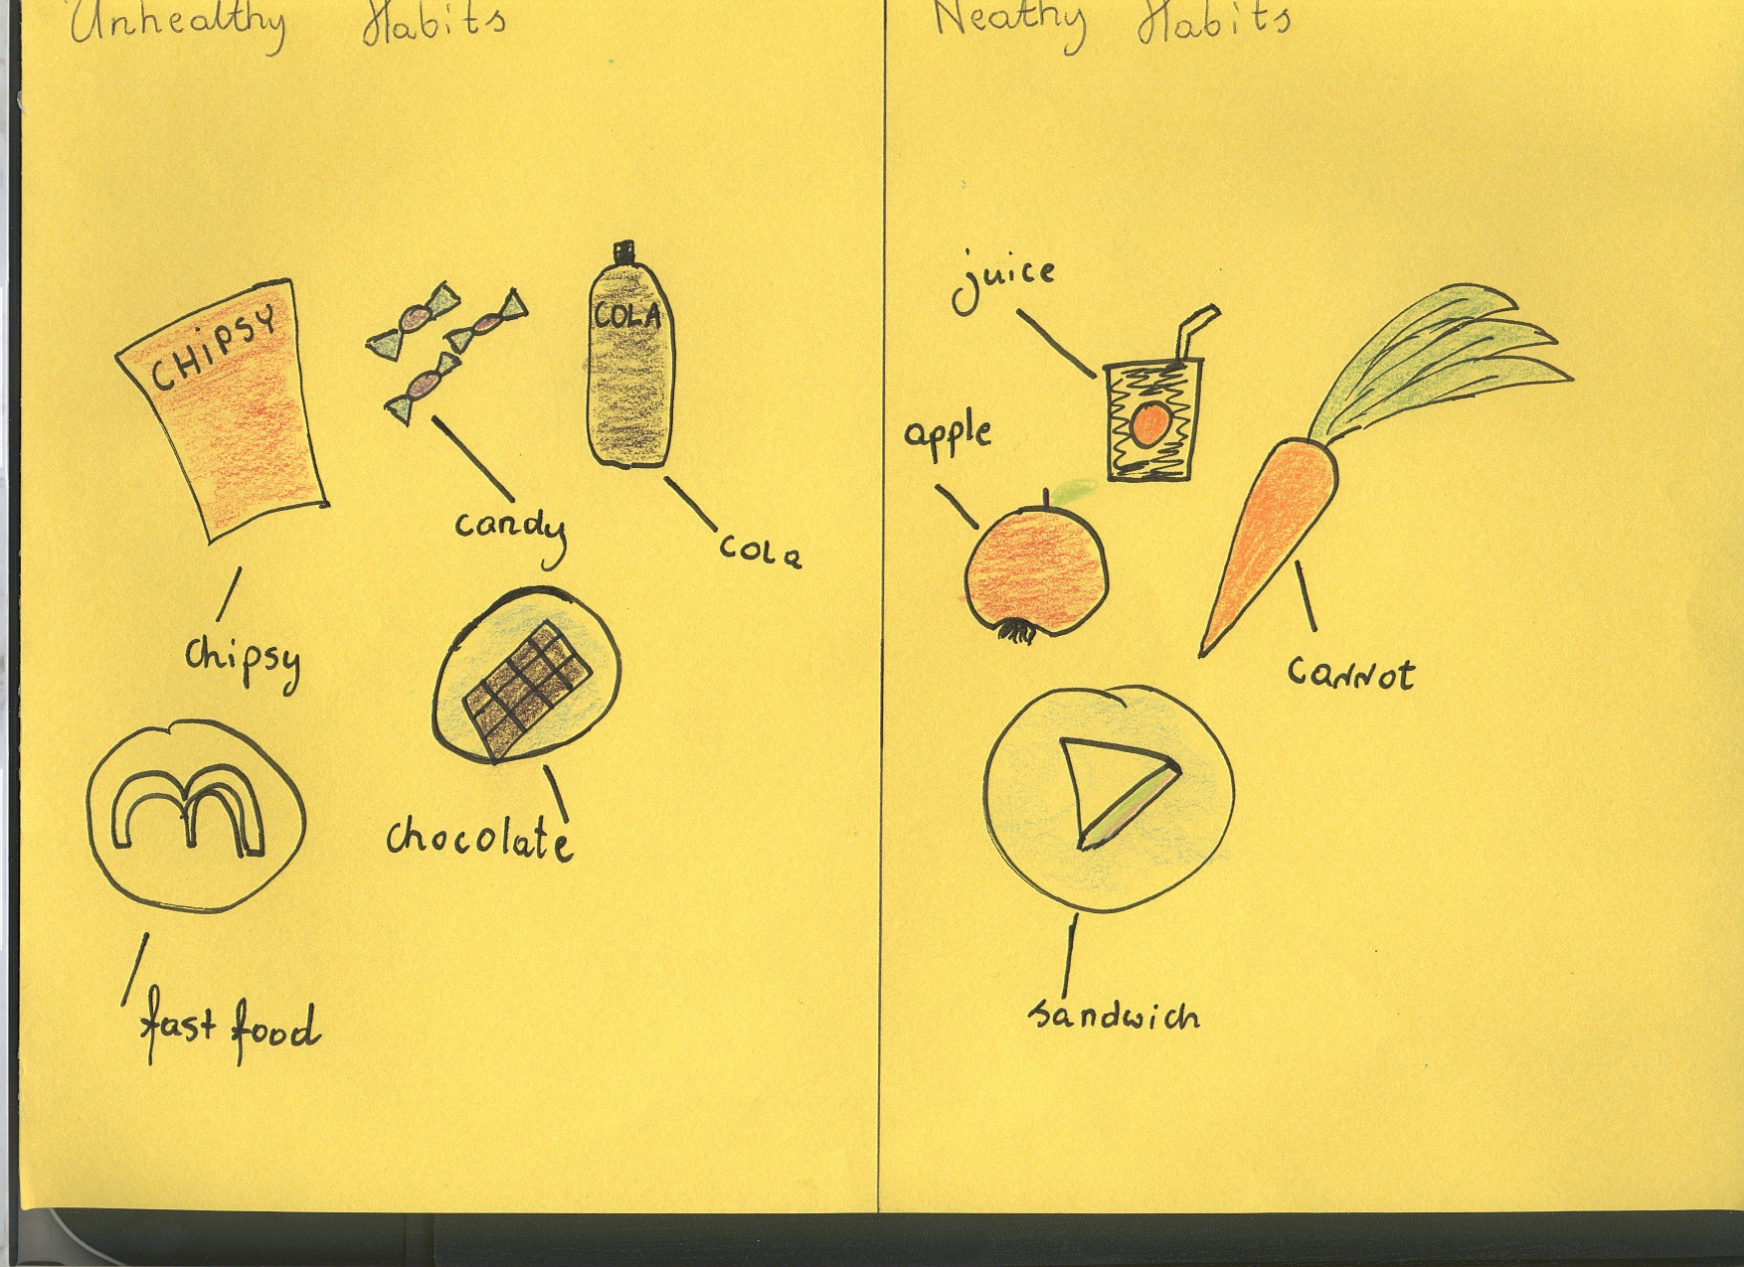 Unhealthy Habits
CHiPSY
candy
COLA
cola
Chipsy
chocolate
fast food
Neathy Habits
juice
apple
carrot
sandwich